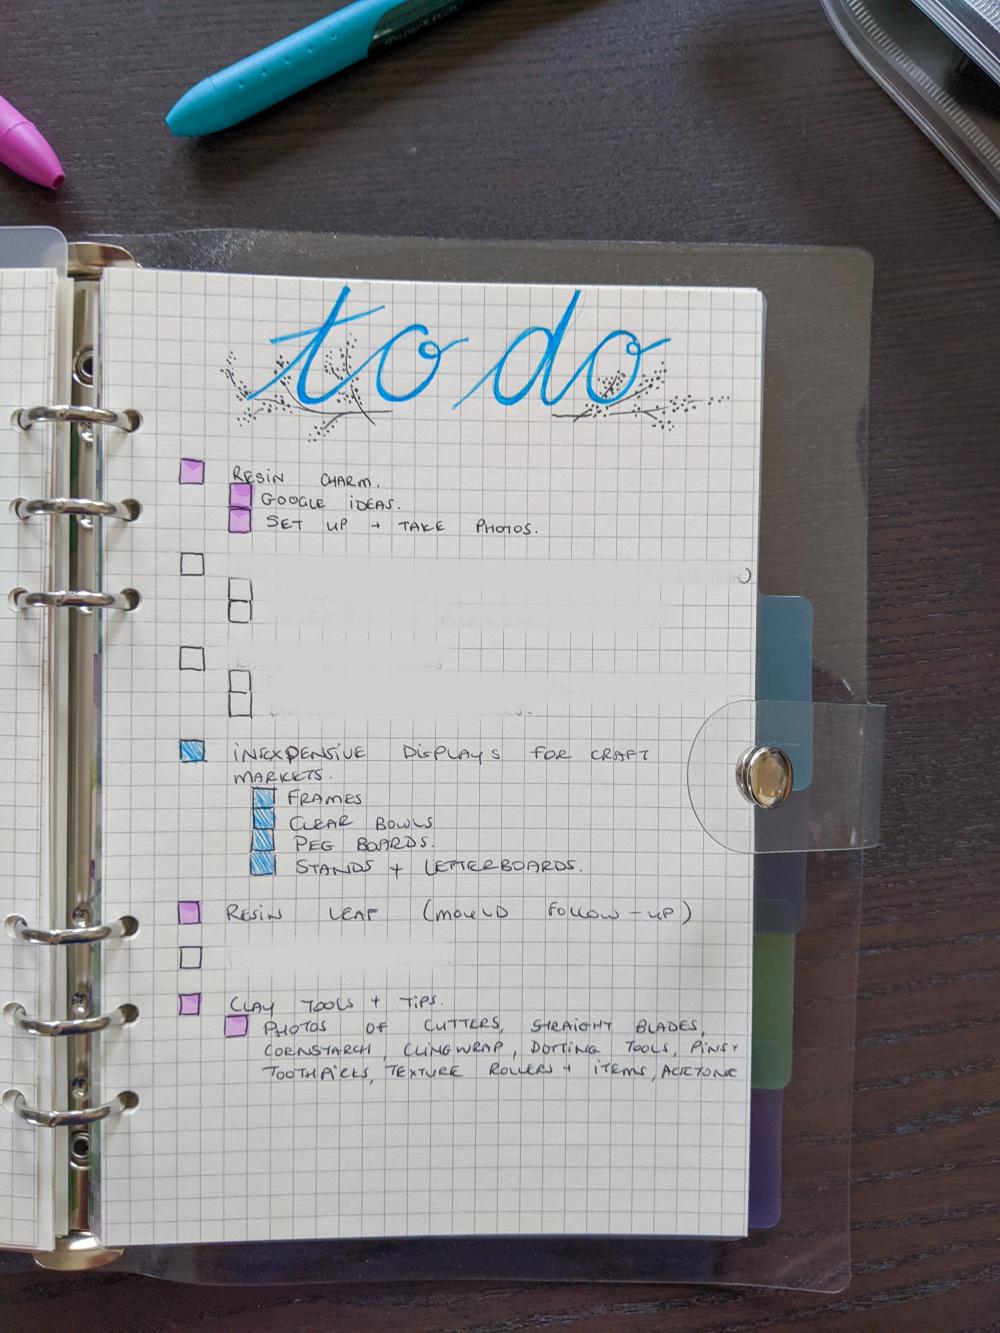 to do
RESIN CHARM.
GOOGLE IDEAS.
SET UP + TAKE PHOTOS.
INEXPENSIVE DISPLAYS FOR CRAFT
MARKETS.
FRAMES
CLEAR BOWLS
PEG BOARDS.
STANDS + LETTERBOARDS.
RESIN LEAF (MOULD FOLLOW-UP)
CLAY TOOLS + TIPS.
PHOTOS OF CUTTERS, STRAIGHT BLADES,
CORNSTARCH, CLINGWRAP, DOTTING TOOLS, PINS +
TOOTHPICKS, TEXTURE ROLLERS + ITEMS, ACETONE